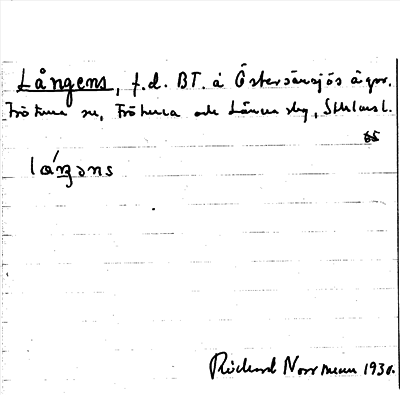 Långens, f.d. BT. å Östersärsjös ägor.
Frötuna sn, Frötuna och Länna skg, Sthlms l.
65
lǻŋəns
Rickard Norrman 1930.